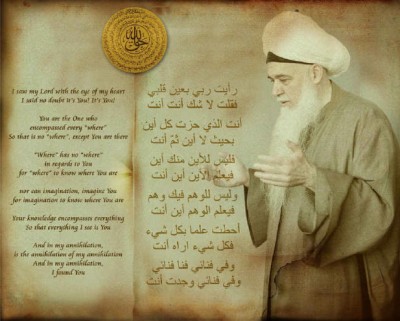 I saw my Lord with the eye of my heart
I said no doubt It's You! It's You!
You are the One who
encompassed every "where"
So that is no "where", except You are there
"Where" has no "where"
in regards to You
for "where" to know where You are
nor can imagination, imagine You
for imagination to know where You are
Your knowledge encompasses everything
So that everything I see is You
And in my annihilation,
is the annihilation of my annihilation
And in my annihilation,
I found You
رأيت ربي بعين قلبي
فقلت لا شك أنت أنت
أنت الذي حزت كل أين
بحيث لا أين ثمّ أنت
فليس للأين منك أين
فيعلم الأين أين أنت
وليس للوهم فيك وهم
فيعلم الوهم أين أنت
أحطت علما بكل شيء
فكل شيء اراه أنت
وفي فنائي فنا فنائي
وفي فنائي وجدت أنت